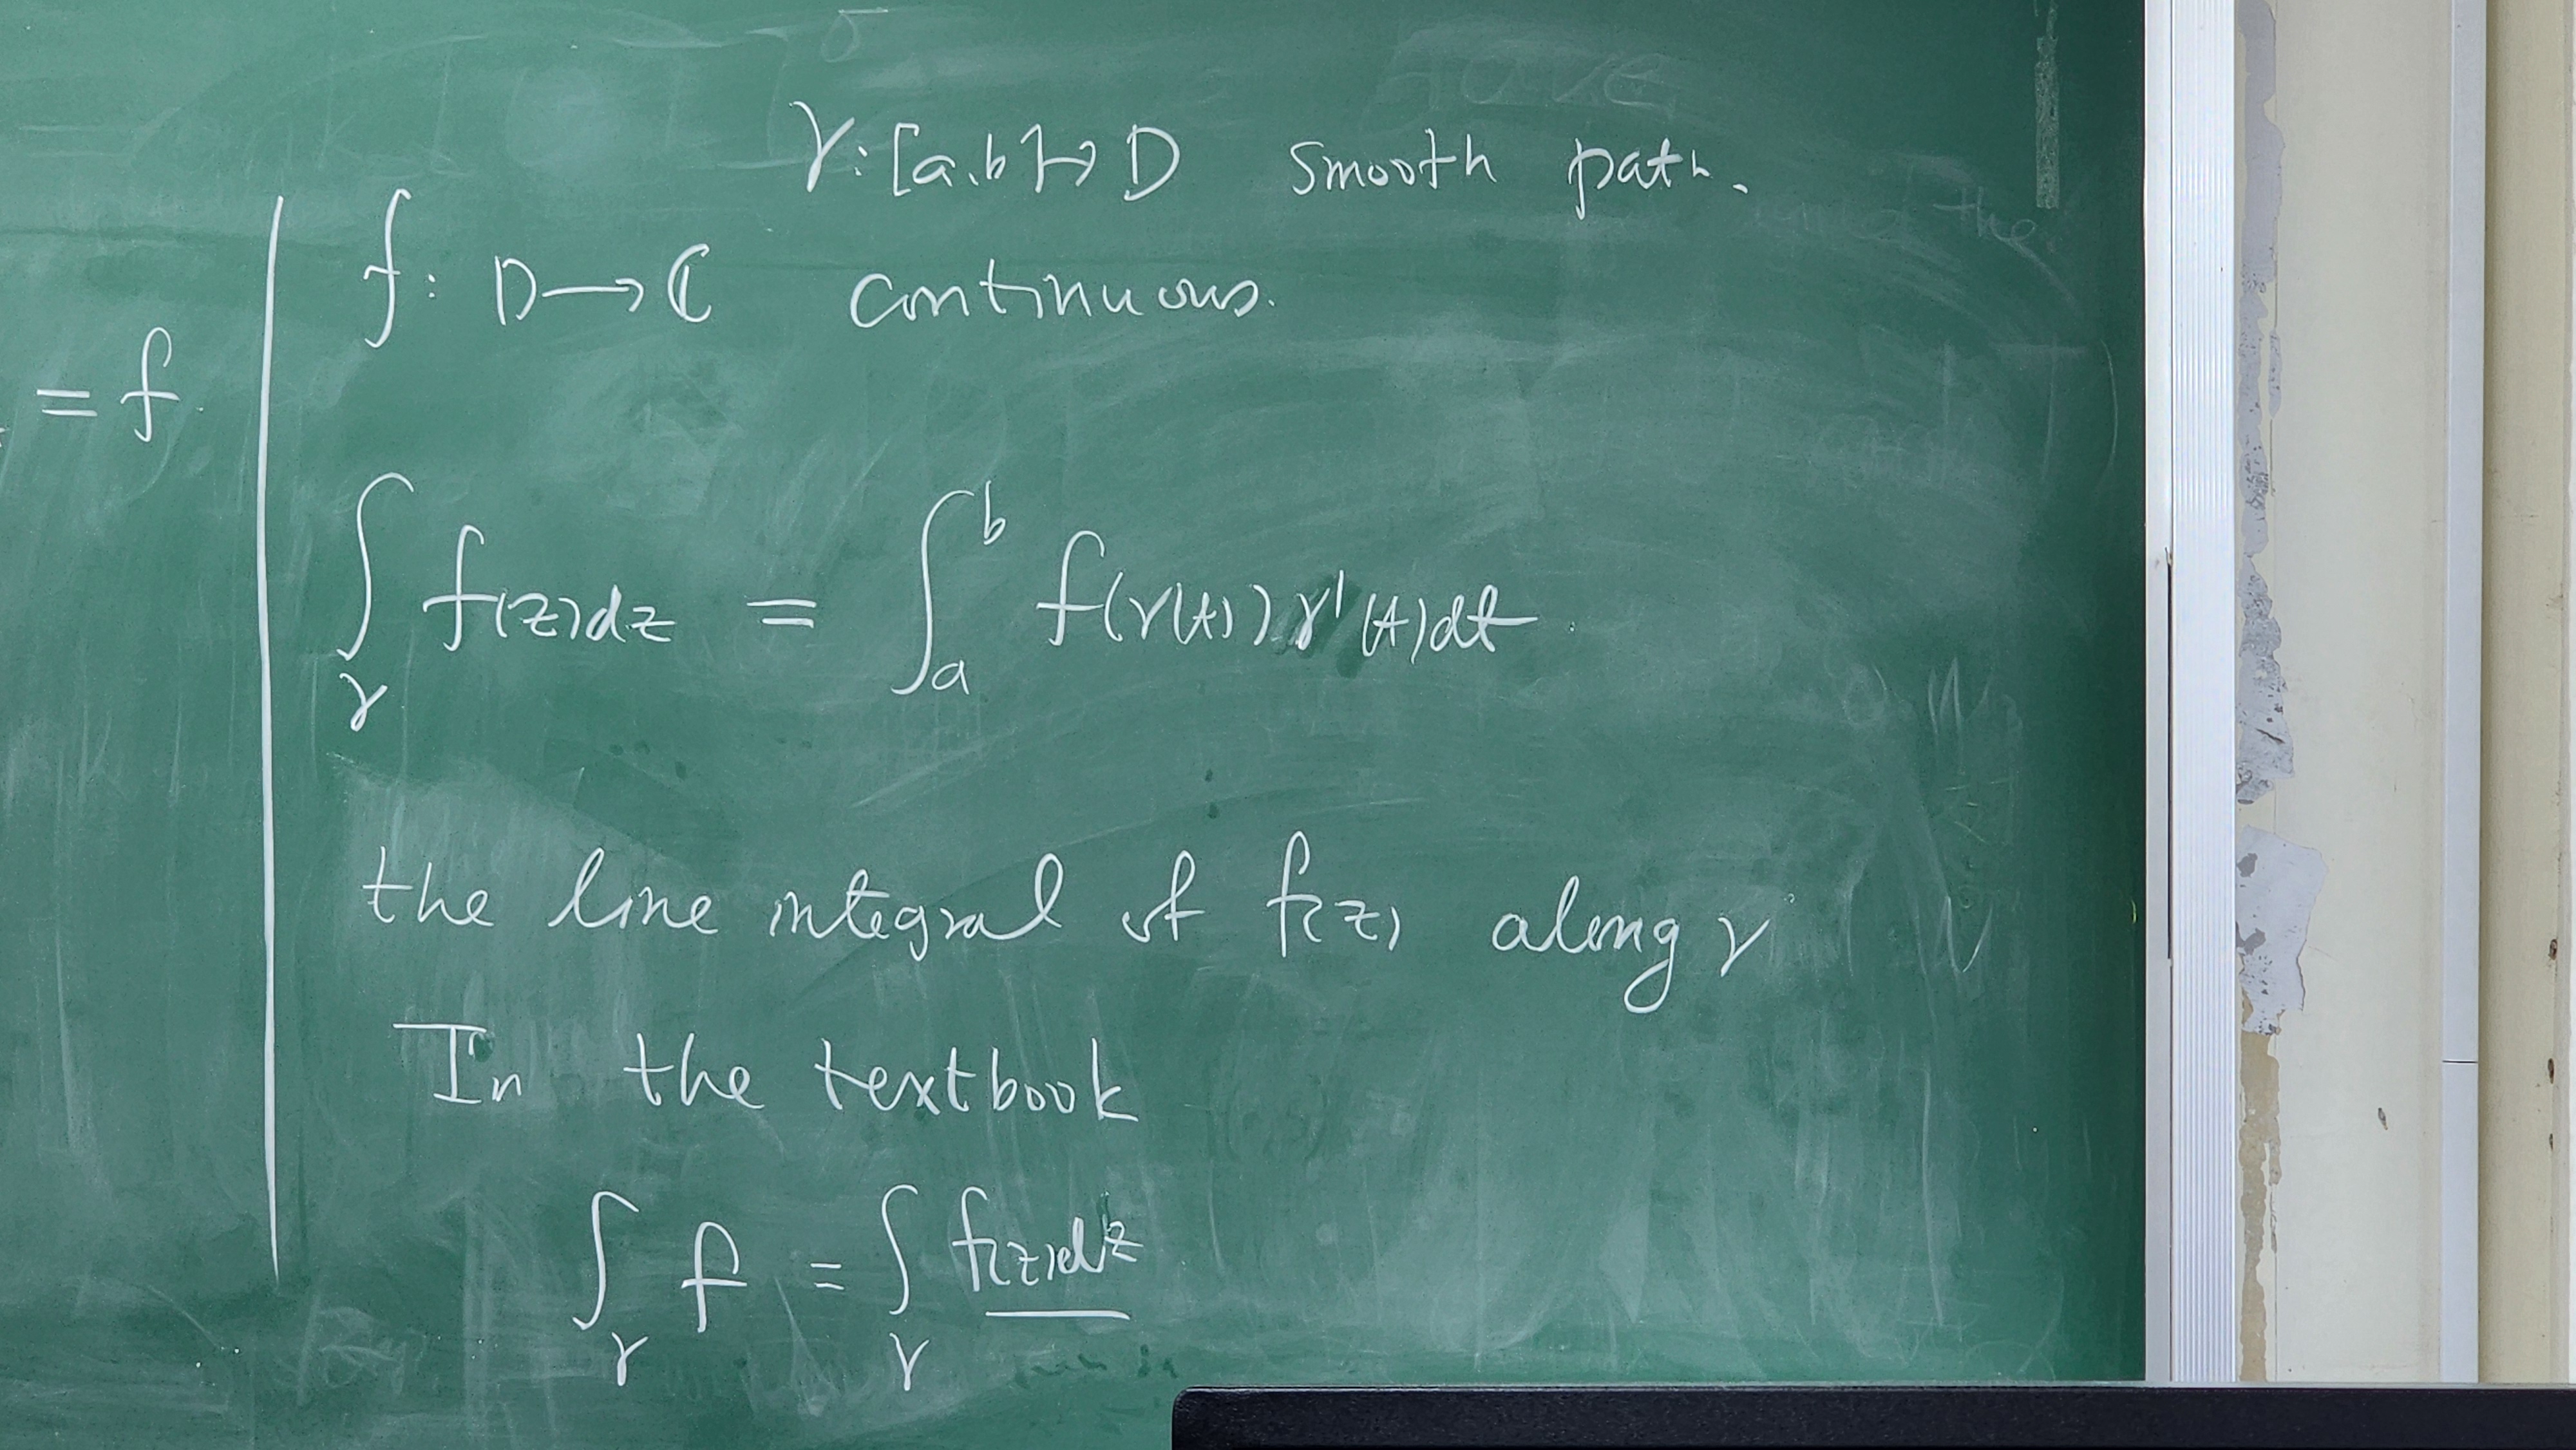 γ: [a,b] → D smooth path.
f: D → ℂ continuous.
= f
∫_γ f(z)dz = ∫_a^b f(γ(t)) γ'(t)dt
the line integral of f(z) along γ
In the textbook
∫_γ f = ∫_γ f(z)dz